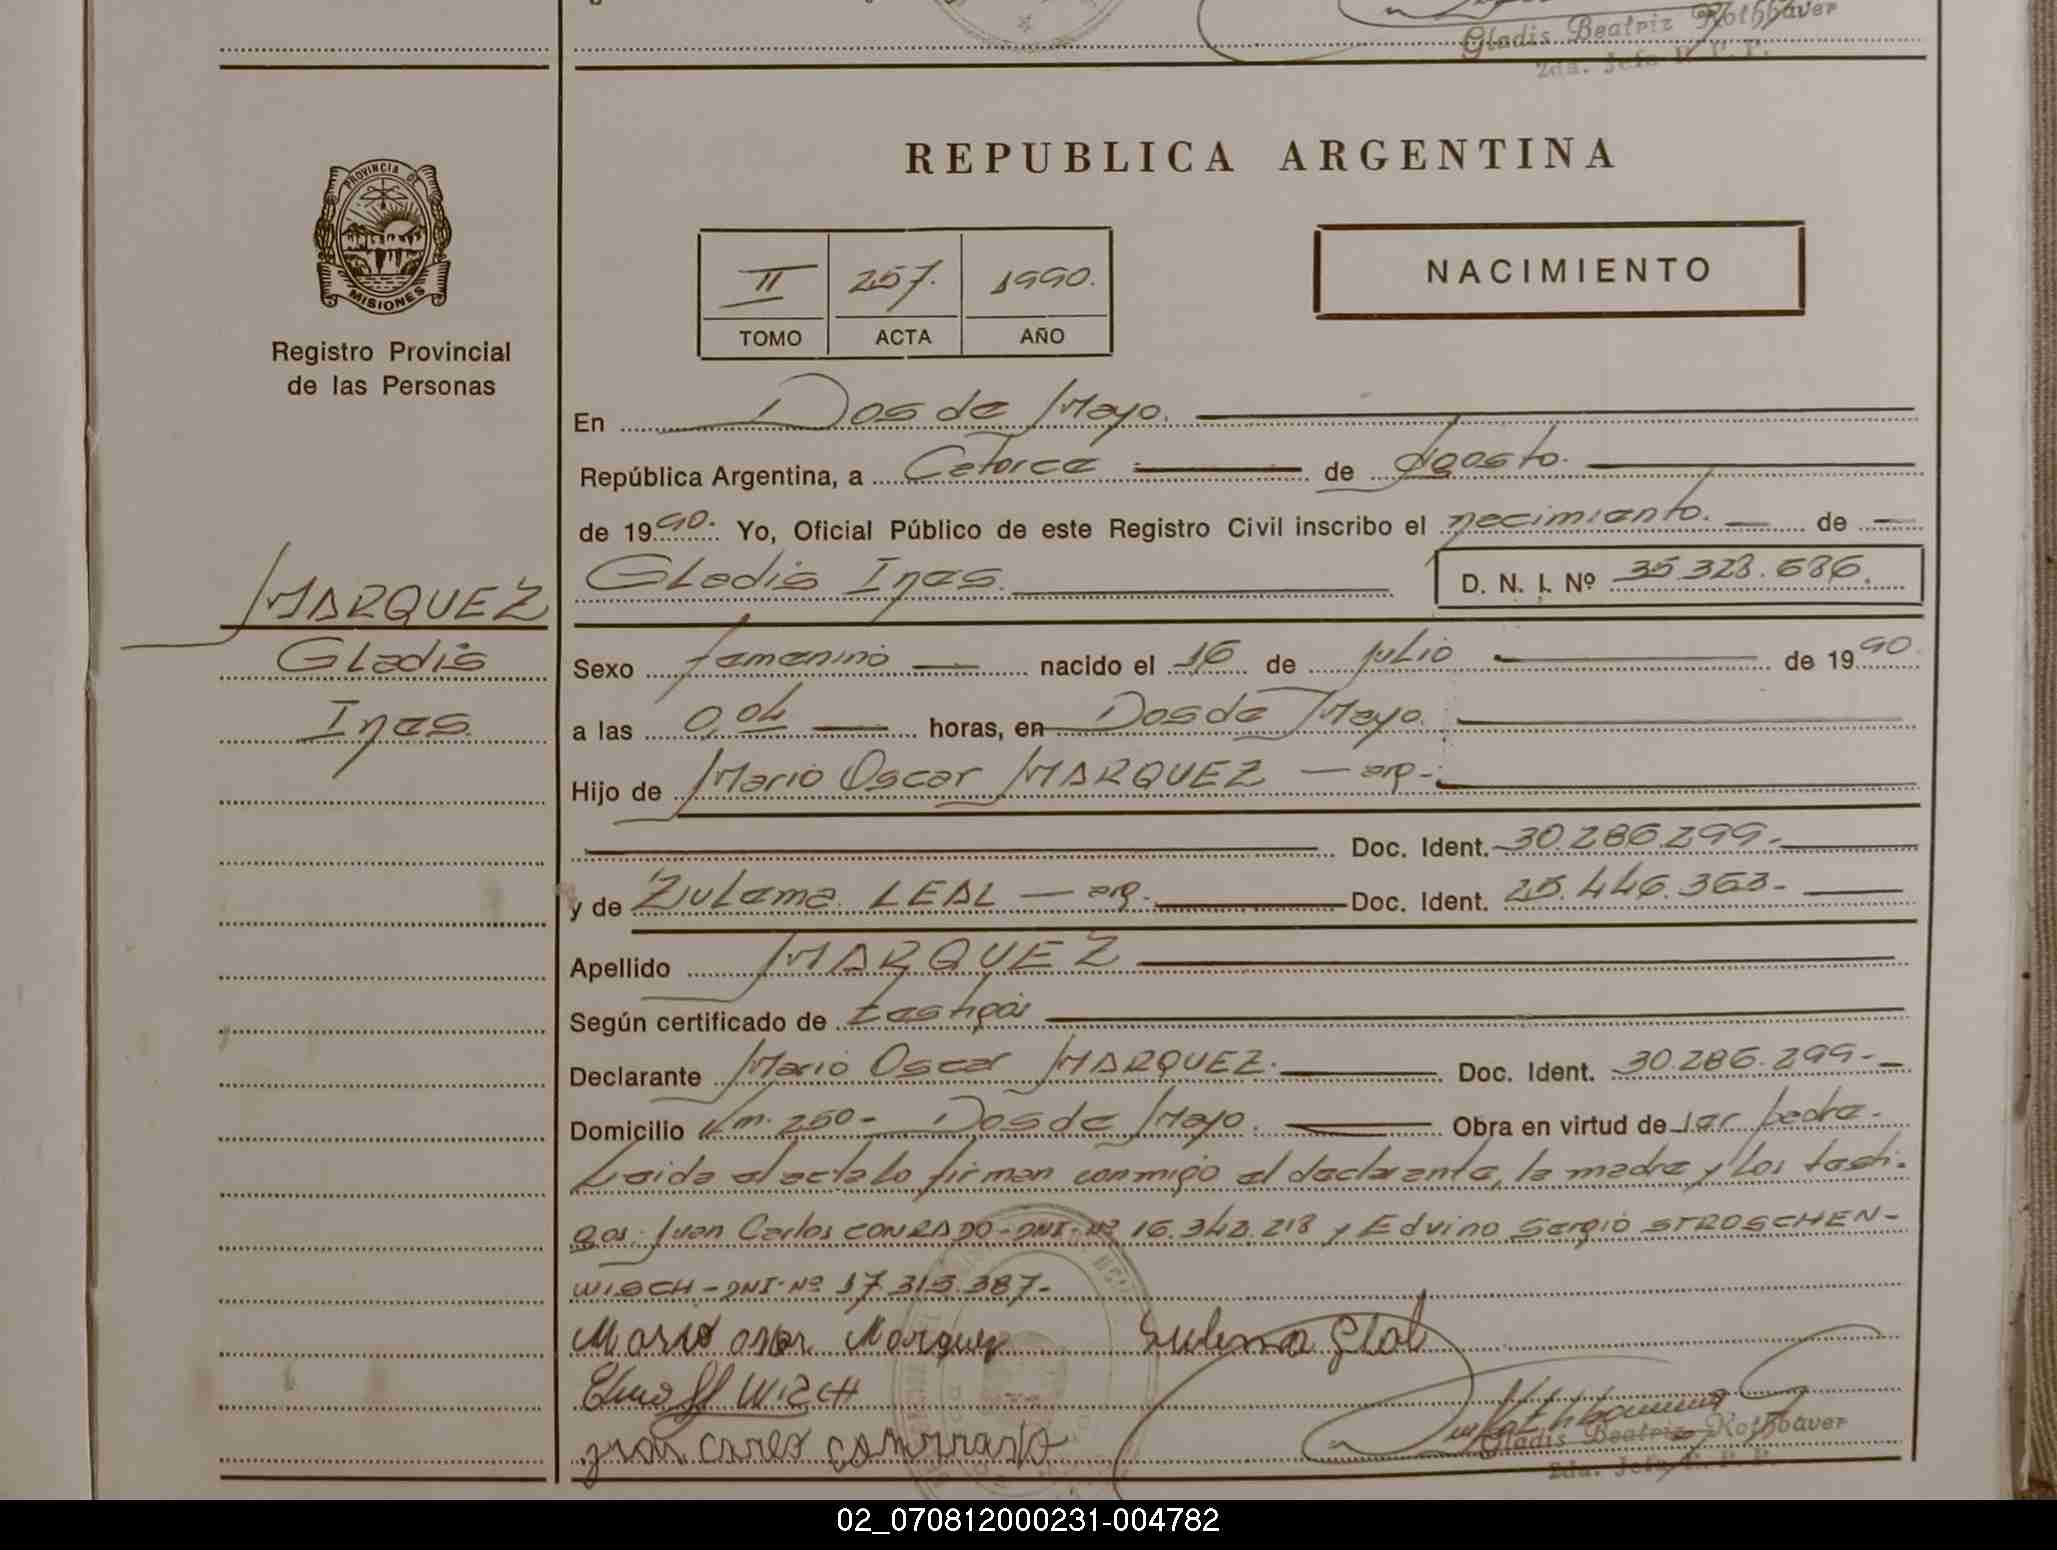 Gladis Beatriz Rothbaver
2da. Jefe R. C. P.
REPUBLICA ARGENTINA
PROVINCIA DE
MISIONES
Registro Provincial
de las Personas
II 257. 1990.
TOMO ACTA AÑO
NACIMIENTO
MARQUEZ
Gladis
Ines.
En Dos de Mayo.
República Argentina, a Catorce de Agosto.
de 1990. Yo, Oficial Público de este Registro Civil inscribo el nacimiento. de
Gladis Ines. D. N. I. Nº 35.328.686.
Sexo femenino nacido el 16 de julio de 1990.
a las 0,04 horas, en Dos de Mayo.
Hijo de Mario Oscar MARQUEZ - arg-
Doc. Ident. 30.286.299.-
y de Zulema LEAL - arg.- Doc. Ident. 25.446.363-
Apellido MARQUEZ
Según certificado de testigos
Declarante Mario Oscar MARQUEZ.- Doc. Ident. 30.286.299-
Domicilio Km. 250- Dos de Mayo. Obra en virtud de ser padre.-
Leida el acta lo firman conmigo el declarante, la madre y los testi-
gos: Juan Carlos CONRADO-DNI-Nº 16.342.218 y Edvino Sergio STROSCHEN-
WISCH-DNI-Nº 17.315.387-
Mario oscar Marquez Sulema Leal
WISCH
juan carlos
Gladis Beatriz Rothbaver
2da. Jefe R. C. P.
02_070812000231-004782